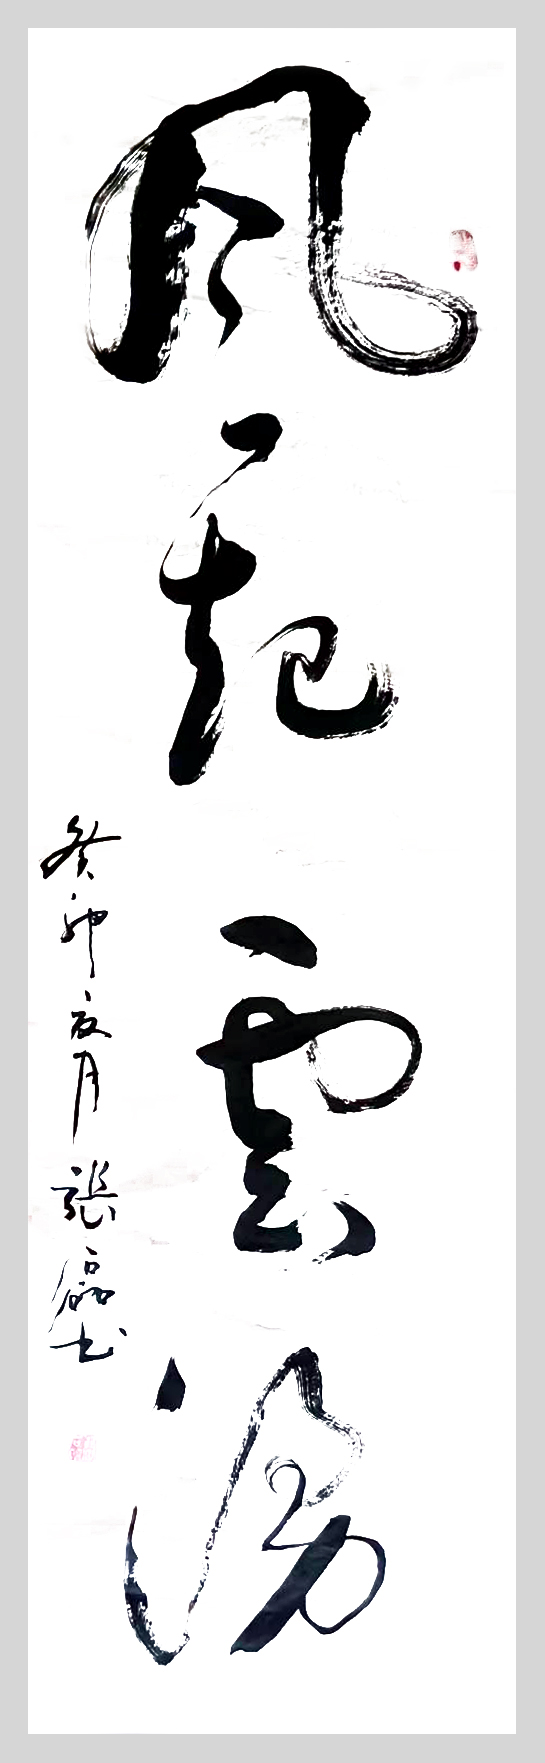 風起雲湧
癸卯夏月張磊书